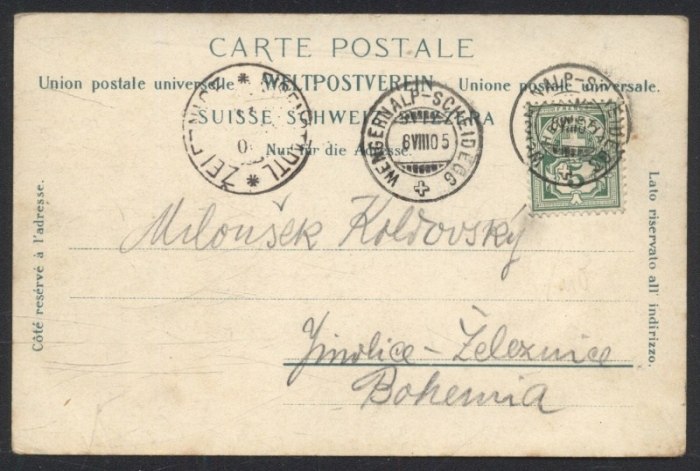 CARTE POSTALE
Union postale universelle WELTPOSTVEREIN Unione postale universale.
SUISSE SCHWEIZ SVIZZERA
Nur für die Adresse.
WENGERNALP-SCHEIDEGG
6 VIII 05
WENGERNALP-SCHEIDEGG
VIII 05
ŽELEZNICE
5
Miloušek Koldovský
Jinolice-Železnice
Bohemia
Côté réservé à l'adresse.
Lato riservato all' indirizzo.